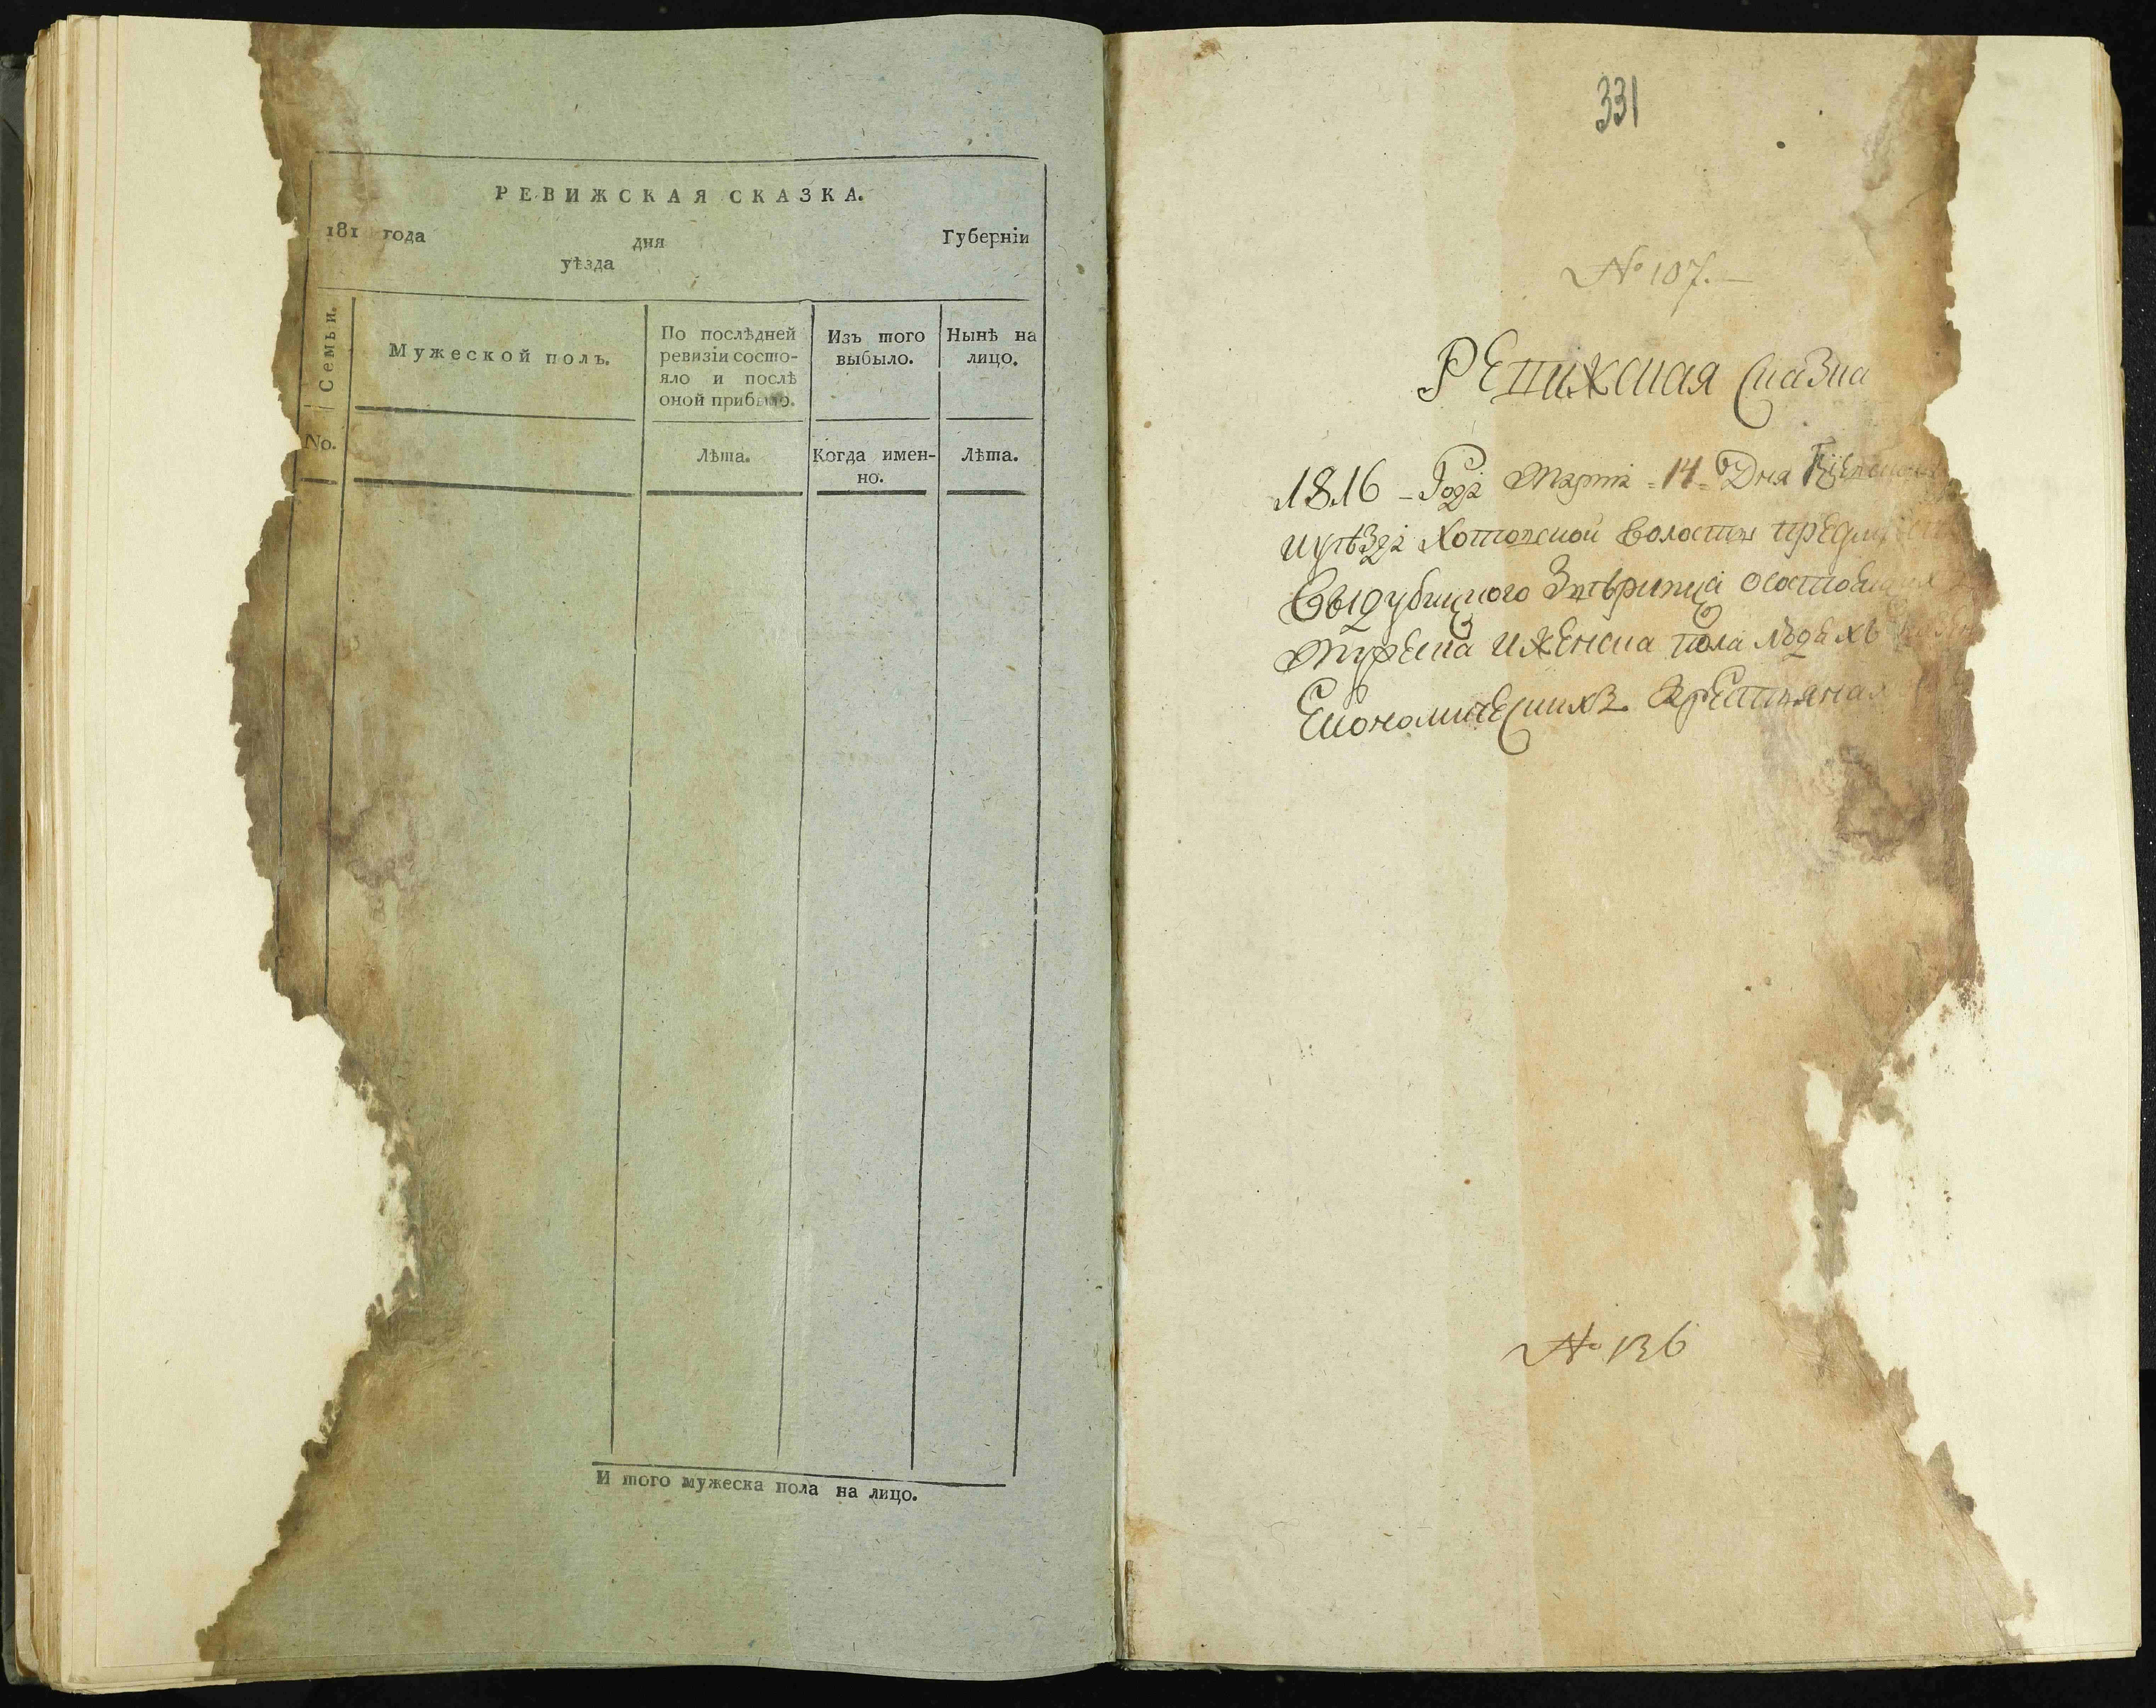 РЕВИЖСКАЯ СКАЗКА.
181 года дня Губернїи
уѣзда
Семьи.
Мужеской полъ.
По послѣдней
ревизїи состо-
яло и послѣ
оной прибыло.
Изъ того
выбыло.
Нынѣ на
лицо.
No.
Лѣта.
Когда имен-
но.
Лѣта.
И того мужеска пола на лицо.
331
№ 107.
Ревижская сказка
1816 - Года Марта - 14 - Дня
и уѣзда Хотовской волости
Выдубицкого Звѣринца о состоящих
мужеска и женска пола людехъ
Економическихъ крестьянах
№ 136